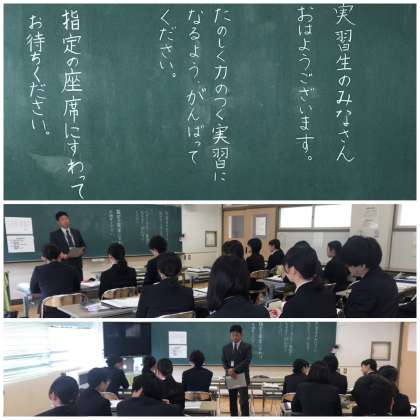 実習生のみなさん
おはようございます。
たのしく力のつく実習に
なるよう、がんばって
ください。
指定の座席にすわって
お待ちください。